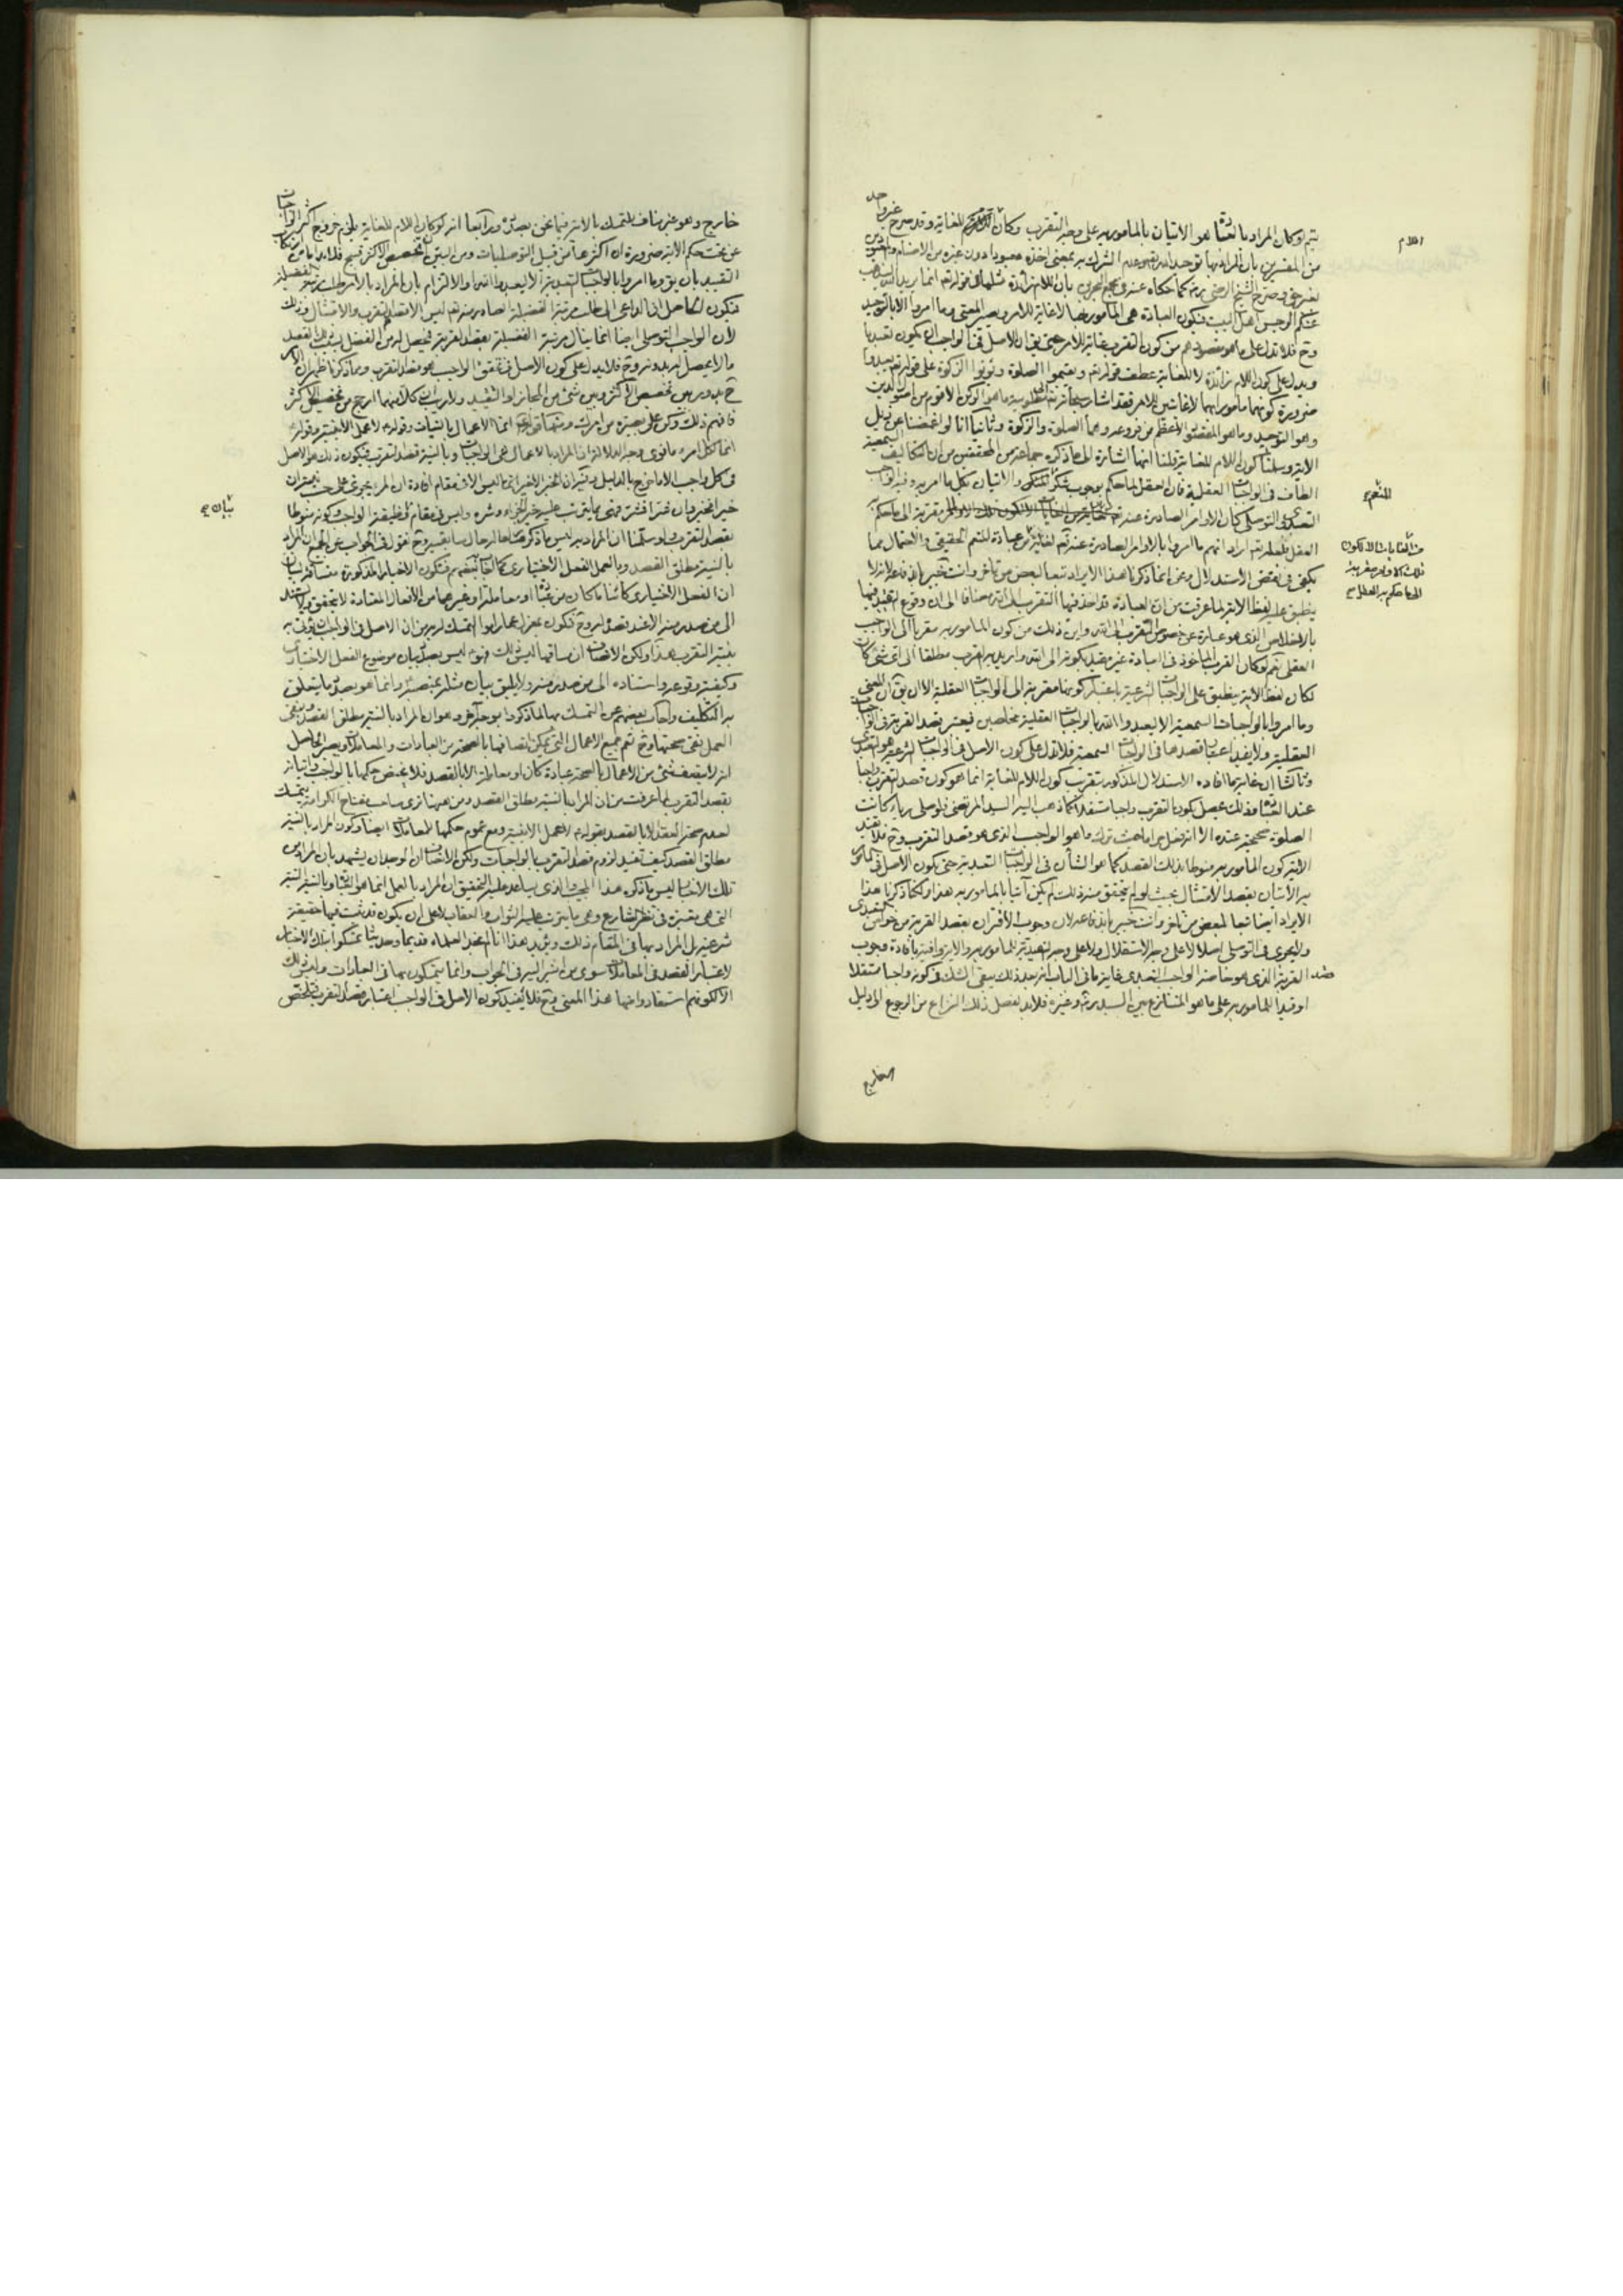 يتم لو كان المراد بالعبادة هو الاتيان بالمأمور به على وجه التقرب وكان اللام للغاية وقد صرح غير واحد
من المفسرين بان المراد بها توحيد الله تعالى وعدم الشرك به بمعنى اخذه معبودا دون غيره من الاصنام
صرح الشيخ الرضي كما حكاه عنه في مجمع البحرين بان اللام زائدة مثلها في قوله تعالى انما يريد الله ليذهب
عنكم الرجس اهل البيت فتكون العبادة هي المأمور بها لا غاية للامر ويصير المعنى وما امروا الا بالتوحيد
وح فلا تدل على ما هو مقصودهم من كون التقرب غاية للامر حتى يق ان الاصل في الواجب ان يكون تعبديا
ويدل على كون اللام زائدة لا للغاية عطف قوله تم ويقيموا الصلوة ويؤتوا الزكوة على قوله تم ليعبدوا
ضرورة كونهما مأمورا بهما لا غايتين للامر فقد اشار سبحانه
وهو التوحيد وما هو المقصد الاعظم من فروعه وهما الصلوة والزكوة وثانيا انا لو اغمضنا عن ذيل
الاية وسلمنا كون اللام للغاية قلنا انها اشارة الى ما ذكره جماعة من المحققين من ان التكاليف السمعية
الطاف في الواجبات العقلية فان العقل لما حكم بوجوب شكر المنعم والاتيان بكل ما امر به
العقل
يكفي في نقض الاستدلال ونحن انما ذكرنا هذا الايراد تبعا لبعض من تأخر وانت خبير
ينطبق على لفظ الاية لما عرفت من ان العبادة قد اخذ فيها التقرب الى الله مضافا الى ان وقوع
بالاخلاص الذي هو عبارة عن خصوص التقرب الى الله واين ذلك من كون المأمور به مقربا الى الواجب
العقلي نعم لو كان القرب المأخوذ في العبادة غير مقيد بكونه الى الله واريد به القرب مطلقا الى اي شيء كان
لكان لفظ الاية ينطبق على الواجبات الشرعية باعتبار كونها مقربة الى الواجبات العقلية الا ان يق ان المعنى
وما امروا بالواجبات السمعية الا ليعبدوا الله بالواجبات العقلية مخلصين فيعتبر قصد القربة في الواجبات
العقلية ولا يفيد اعتبار قصدها في الواجبات السمعية فلا تدل على كون الاصل في الواجبات الشرعية هو التعبد
وثالثا ان غاية ما افاده الاستدلال المذكور بتقريب كون اللام للغاية انما هو كون قصد التقرب واجبا
عند العبادة وذلك يحصل بكون التقرب واجبا مستقلا كما ذهب اليه السيد المرتضى فلو صلى رياء كانت
الصلوة صحيحة عنده الا انه فعل حراما حيث ترك ما هو الواجب الذي هو قصد التقرب وح فلا تفيد
الاية كون المأمور به منوطا بذلك القصد كما هو الشأن في الواجبات التعبدية حتى يكون الاصل في المأمور
به الاتيان بقصد الامتثال بحيث لو لم يتحقق منه ذلك لم يكن آتيا بالمأمور به هذا ولكنا ذكرنا هذا
الايراد ايضا تبعا لبعض من تأخر وانت خبير باندفاعه لان وجوب الاقتران بقصد القربة من خواص التعبدي
ولا يجري في التوصلي اصلا لا على وجه الاستقلال ولا على وجه القيدية للمأمور به والاية وافية بافادة وجوب
قصد القربة الذي هو خاصة الواجب التعبدي غاية ما في الباب انه بعد ذلك يبقى الشك في كونه واجبا مستقلا
او قيدا للمأمور به على ما هو المتنازع بين السيد وغيره فلا بد لفصل ذلك النزاع من الرجوع الى دليل
اللام
المنعم
خارج
خارج وهو غير مناف للتمسك بالاية فيما نحن بصدده ورابعا انه لو كان اللام للغاية يلزم خروج اكثر الواجبات
عن تحت حكم الاية ضرورة ان اكثرها من قبيل التوصليات ومن البين ان تخصيص الاكثر قبيح فلا بد اما من
التقييد بان يق وما امروا بالواجبات التعبدية الا ليعبدوا الله او الالتزام بان المراد بالامر
لان الواجب التوصلي ايضا انما ينال مرتبة الفضيلة بقصد القربة فيحصل له من الفضل بذلك القصد
ما لا يحصل له بدونه وح فلا يدل على كون الاصل في تحقق الواجب هو قصد التقرب ومما ذكرنا ظهر ان الامر
ح يدور بين تخصيص الاكثر وبين شيء من المجاز او التقييد ولا ريب ان كلا منهما ارجح من تخصيص الاكثر
فافهم ذلك وكن على بصيرة من امرك ومنها قوله انما الاعمال بالنيات وقوله لا عمل الا بنية وقوله
انما لكل امرء ما نوى وجه الدلالة ان المراد بالاعمال هي الواجبات وبالنية قصد التقرب فيكون ذلك هو الاصل
في كل واجب الا ما خرج بالدليل
خيرا فخير وان شرا فشر
بقصد التقرب ولو سلمنا ان المراد به ليس ما ذكر
بالنية مطلق القصد وبالعمل الفعل الاختياري كما اجاب بعضهم فتكون الاخبار المذكورة مساقة لبيان
ان الفعل الاختياري كائنا ما كان من عبادة او معاملة او غيرهما من الافعال المعتادة لا يتحقق ولا يستند
الى من صدر منه الا عند قصده اليه وح فتكون بمعزل عما راموا التمسك له به من ان الاصل في الواجب ان يؤتى به
بنية التقرب هذا ولكن الانصاف ان مساقها ليس ذلك فهو ع ليس بصدد بيان موضوع الفعل الاختياري
وكيفية وقوعه واستناده الى من صدر منه ولا يليق بيان مثله بمنصبه وانما هو بصدد ما يتعلق
به التكليف واجاب بعضهم عن التمسك بها لما ذكروا بوجه آخر وهو ان المراد بالنية مطلق القصد وبنفي
العمل نفي صحتها وح تعم جميع الاعمال التي يمكن اتصافها بالصحة من العبادات والمعاملات ويصير الحاصل
انه لا يتصف شيء من الاعمال بالصحة عبادة كان او معاملة الا بالقصد فلا يختص حكمها بالواجب واتيانه
بقصد التقرب لما عرفت من ان المراد بالنية مطلق القصد ومن هنا ترى صاحب مفتاح الكرامة يتمسك
لعدم صحة العقد الا بالقصد بقوله لا عمل الا بنية ومع عموم حكمها للمعاملات ايضا وكون المراد بالنية
مطلق القصد كيف تفيد لزوم قصد التقرب بالواجبات ولكن الانصاف ان الوجدان يشهد بان المراد من
تلك الاخبار ليس ما ذكره هذا المجيب والذي يساعد عليه التحقيق ان المراد بالعمل انما هو العبادة وبالنية النية
التي هي معتبرة في نظر الشارع وهي ما يترتب عليه الثواب والعقاب لا على ان يكون قد ثبت فيها حقيقة
شرعية بل المراد بها في المقام ذلك ويؤيد هذا انا لم نجد العلماء قديما وحديثا تمسكوا بتلك الاخبار
لاعتبار القصد في المعاملات سوى من اشير اليه في الجواب وانما يتمسكون بها في العبادات وليس ذلك
الا لكونهم استفادوا منها هذا المعنى وح فلا تفيد كون الاصل في الواجب اعتبار قصد التقرب فتلخص
بيان